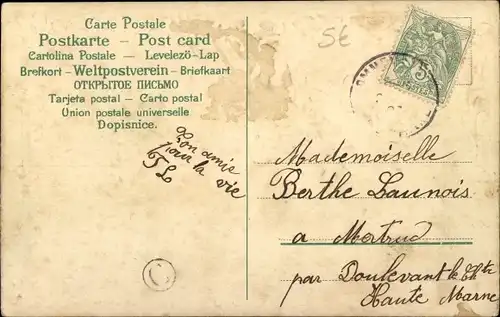 Carte Postale
Postkarte – Post card
Cartolina Postale – Levelezö-Lap
Brefkort - Weltpostverein - Briefkaart
ОТКРЫТОЕ ПИСЬМО
Tarjeta postal – Carto postal
Union postale universelle
Dopisnice.
5€
Ton amie
pour la vie
C
Mademoiselle
Berthe Launois
a Mertrud
par Doulevant le
Haute Marne